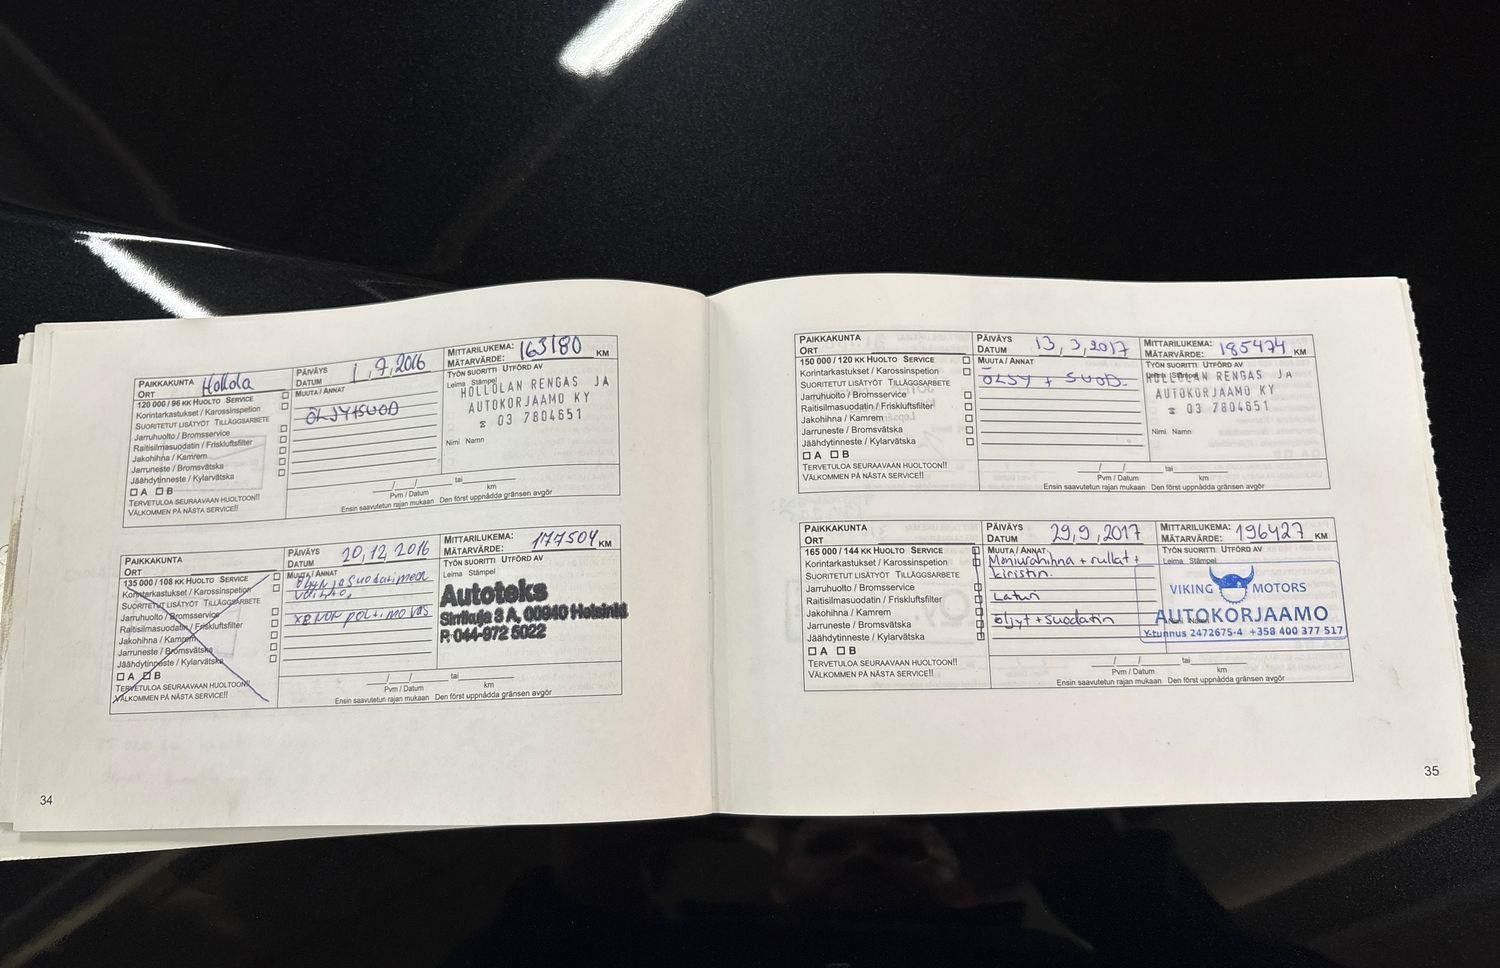 PAIKKAKUNTA
ORT Hollola
PÄIVÄYS
DATUM 1.7.2016
MITTARILUKEMA:
MÄTARVÄRDE: 163180 KM
120 000 / 96 KK HUOLTO SERVICE
Korintarkastukset / Karossinspetion
SUORITETUT LISÄTYÖT TILLÄGGSARBETE
Jarruhuolto / Bromsservice
Raitisilmasuodatin / Friskluftsfilter
Jakohihna / Kamrem
Jarruneste / Bromsvätska
Jäähdytinneste / Kylarvätska
A B
TERVETULOA SEURAAVAAN HUOLTOON!!
VÄLKOMMEN PÅ NÄSTA SERVICE!!
MUUTA / ANNAT
ÖLJY+SUOD
TYÖN SUORITTI UTFÖRD AV
Leima Stämpel
HOLLOLAN RENGAS JA
AUTOKORJAAMO KY
☎ 03 7804651
Nimi Namn
/ / tai
Pvm / Datum km
Ensin saavutetun rajan mukaan Den först uppnådda gränsen avgör
PAIKKAKUNTA
ORT
PÄIVÄYS
DATUM 20.12.2016
MITTARILUKEMA:
MÄTARVÄRDE: 177504 KM
135 000 / 108 KK HUOLTO SERVICE
Korintarkastukset / Karossinspetion
SUORITETUT LISÄTYÖT TILLÄGGSARBETE
Jarruhuolto / Bromsservice
Raitisilmasuodatin / Friskluftsfilter
Jakohihna / Kamrem
Jarruneste / Bromsvätska
Jäähdytinneste / Kylarvätska
A B
TERVETULOA SEURAAVAAN HUOLTOON!!
VÄLKOMMEN PÅ NÄSTA SERVICE!!
MUUTA / ANNAT
vaihto,
polttimo
TYÖN SUORITTI UTFÖRD AV
Leima Stämpel
Autoteks
Sirrikuja 3 A, 00940 Helsinki
P. 044-972 5022
/ / tai
Pvm / Datum km
Ensin saavutetun rajan mukaan Den först uppnådda gränsen avgör
34
PAIKKAKUNTA
ORT
PÄIVÄYS
DATUM 13.3.2017
MITTARILUKEMA:
MÄTARVÄRDE: 185474 KM
150 000 / 120 KK HUOLTO SERVICE
Korintarkastukset / Karossinspetion
SUORITETUT LISÄTYÖT TILLÄGGSARBETE
Jarruhuolto / Bromsservice
Raitisilmasuodatin / Friskluftsfilter
Jakohihna / Kamrem
Jarruneste / Bromsvätska
Jäähdytinneste / Kylarvätska
A B
TERVETULOA SEURAAVAAN HUOLTOON!!
VÄLKOMMEN PÅ NÄSTA SERVICE!!
MUUTA / ANNAT
ÖLJY + SUOD.
TYÖN SUORITTI UTFÖRD AV
Leima Stämpel
HOLLOLAN RENGAS JA
AUTOKORJAAMO KY
☎ 03 7804651
Nimi Namn
/ / tai
Pvm / Datum km
Ensin saavutetun rajan mukaan Den först uppnådda gränsen avgör
PAIKKAKUNTA
ORT
PÄIVÄYS
DATUM 29.9.2017
MITTARILUKEMA:
MÄTARVÄRDE: 196427 KM
165 000 / 144 KK HUOLTO SERVICE
Korintarkastukset / Karossinspetion
SUORITETUT LISÄTYÖT TILLÄGGSARBETE
Jarruhuolto / Bromsservice
Raitisilmasuodatin / Friskluftsfilter
Jakohihna / Kamrem
Jarruneste / Bromsvätska
Jäähdytinneste / Kylarvätska
A B
TERVETULOA SEURAAVAAN HUOLTOON!!
VÄLKOMMEN PÅ NÄSTA SERVICE!!
MUUTA / ANNAT
Moniurahihna + rullat +
kiristin.
Laturi
öljyt + Suodatin
TYÖN SUORITTI UTFÖRD AV
Leima Stämpel
VIKING MOTORS
AUTOKORJAAMO
Y-tunnus 2472675-4 +358 400 377 517
/ / tai
Pvm / Datum km
Ensin saavutetun rajan mukaan Den först uppnådda gränsen avgör
35